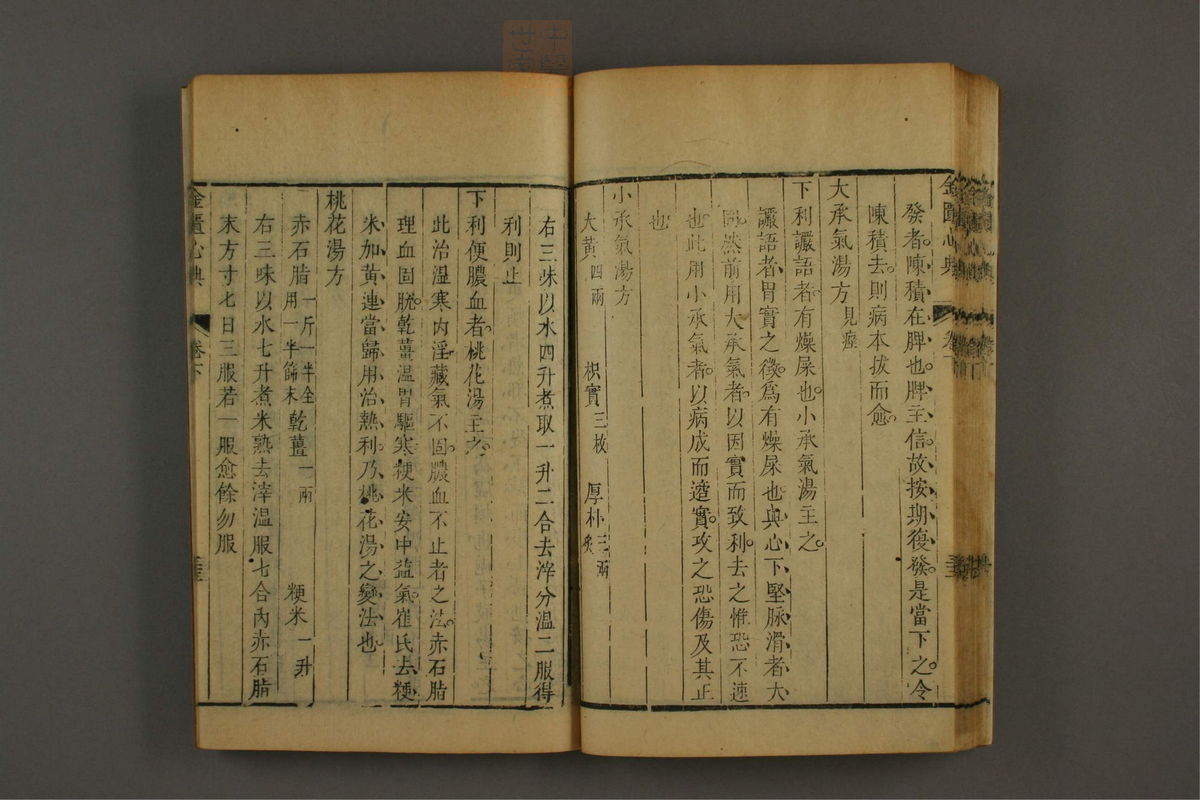 發者陳積在脾也脾主信故按期復發是當下之令
陳積去則病本拔而愈
大承氣湯方見痙
下利讝語者有燥屎也小承氣湯主之
讝語者胃實之徵爲有燥屎也與心下堅脉滑者大
同然前用大承氣者以因實而致利去之惟恐不速
也此用小承氣者以病成而適實攻之恐傷及其正
也
小承氣湯方
大黃四兩 枳實三枚 厚朴三兩炙
右三味以水四升煮取一升二合去滓分溫二服得
利則止
下利便膿血者桃花湯主之
此治溫寒內淫藏氣不固膿血不止者之法赤石脂
理血固脫乾薑溫胃驅寒粳米安中益氣崔氏去粳
米加黃連當歸用治熱利乃桃花湯之變法也
桃花湯方
赤石脂一斤一半全用一半篩末 乾薑一兩 粳米一升
右三味以水七升煮米熟去滓溫服七合內赤石脂
末方寸七日三服若一服愈餘勿服
金匱心典 卷下